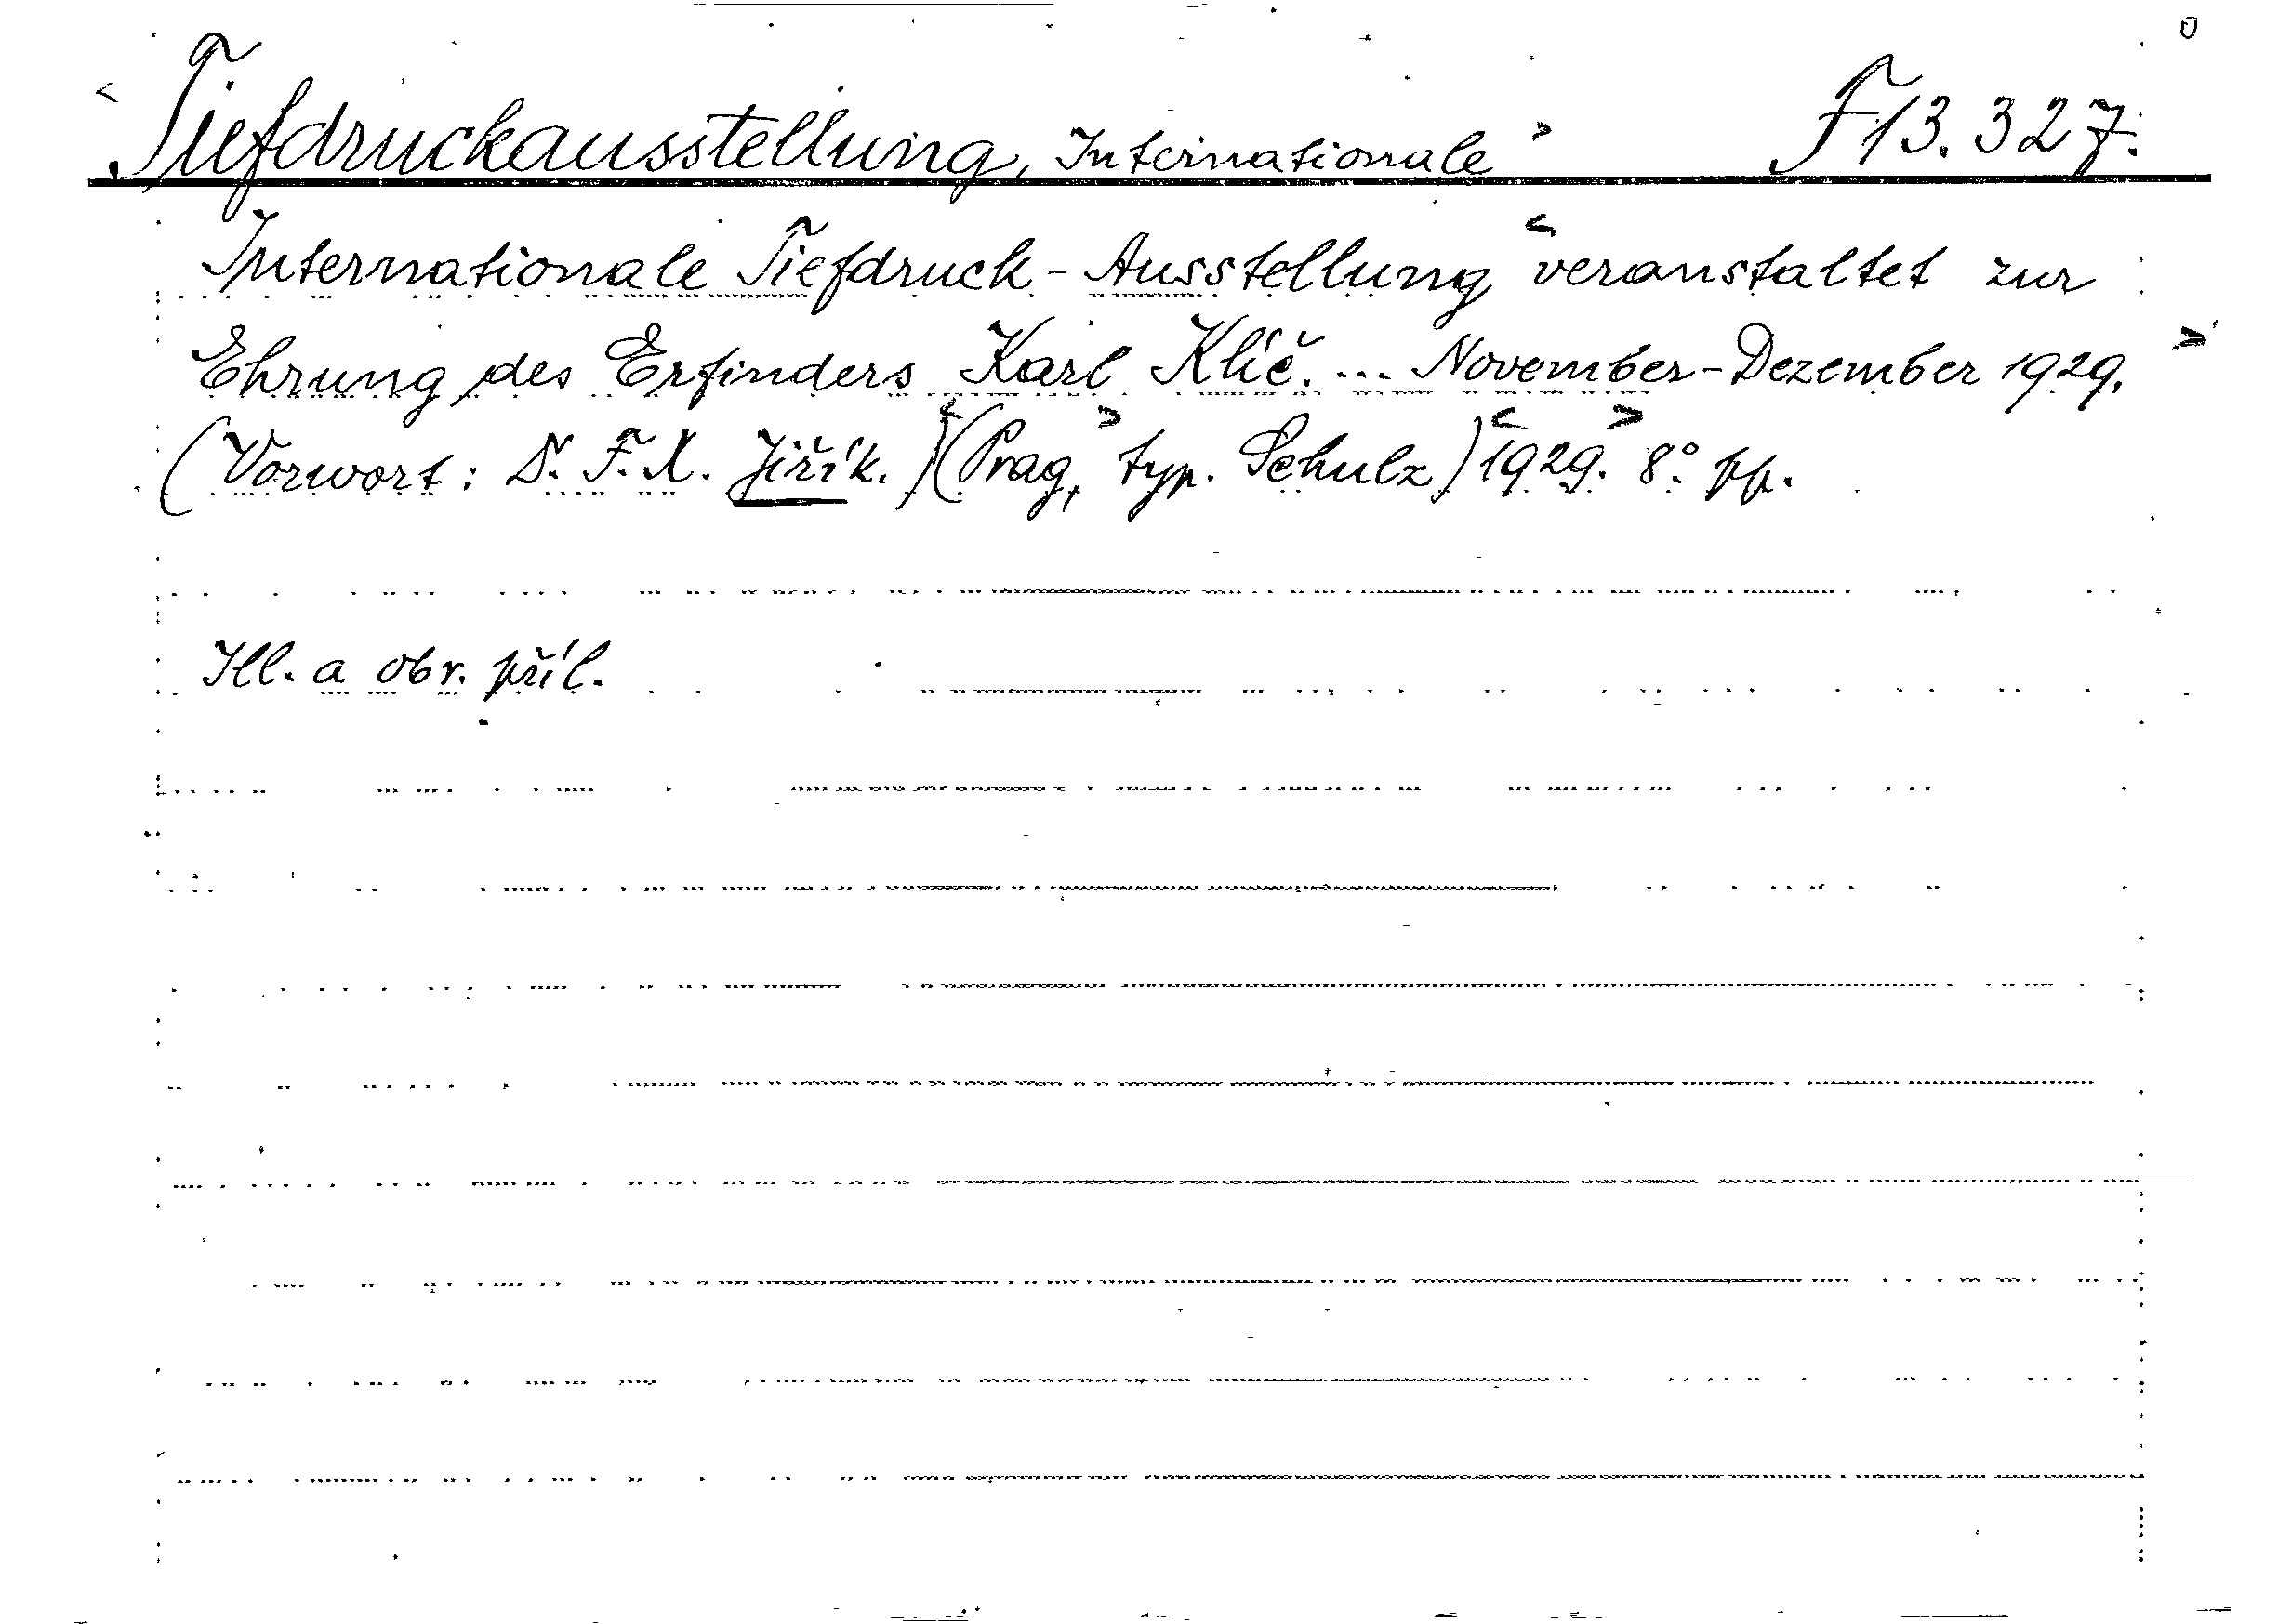 <Tiefdruckausstellung, Internationale> F 13.327.
Internationale Tiefdruck-Ausstellung <veranstaltet zur
Ehrung des Erfinders Karl Klíč. ... November-Dezember 1929.>
(Vorwort: D. F. X. Jiřík.) <(Prag,> typ. Schulz) <1929.> 8° pp.
Ill. a obr. příl.